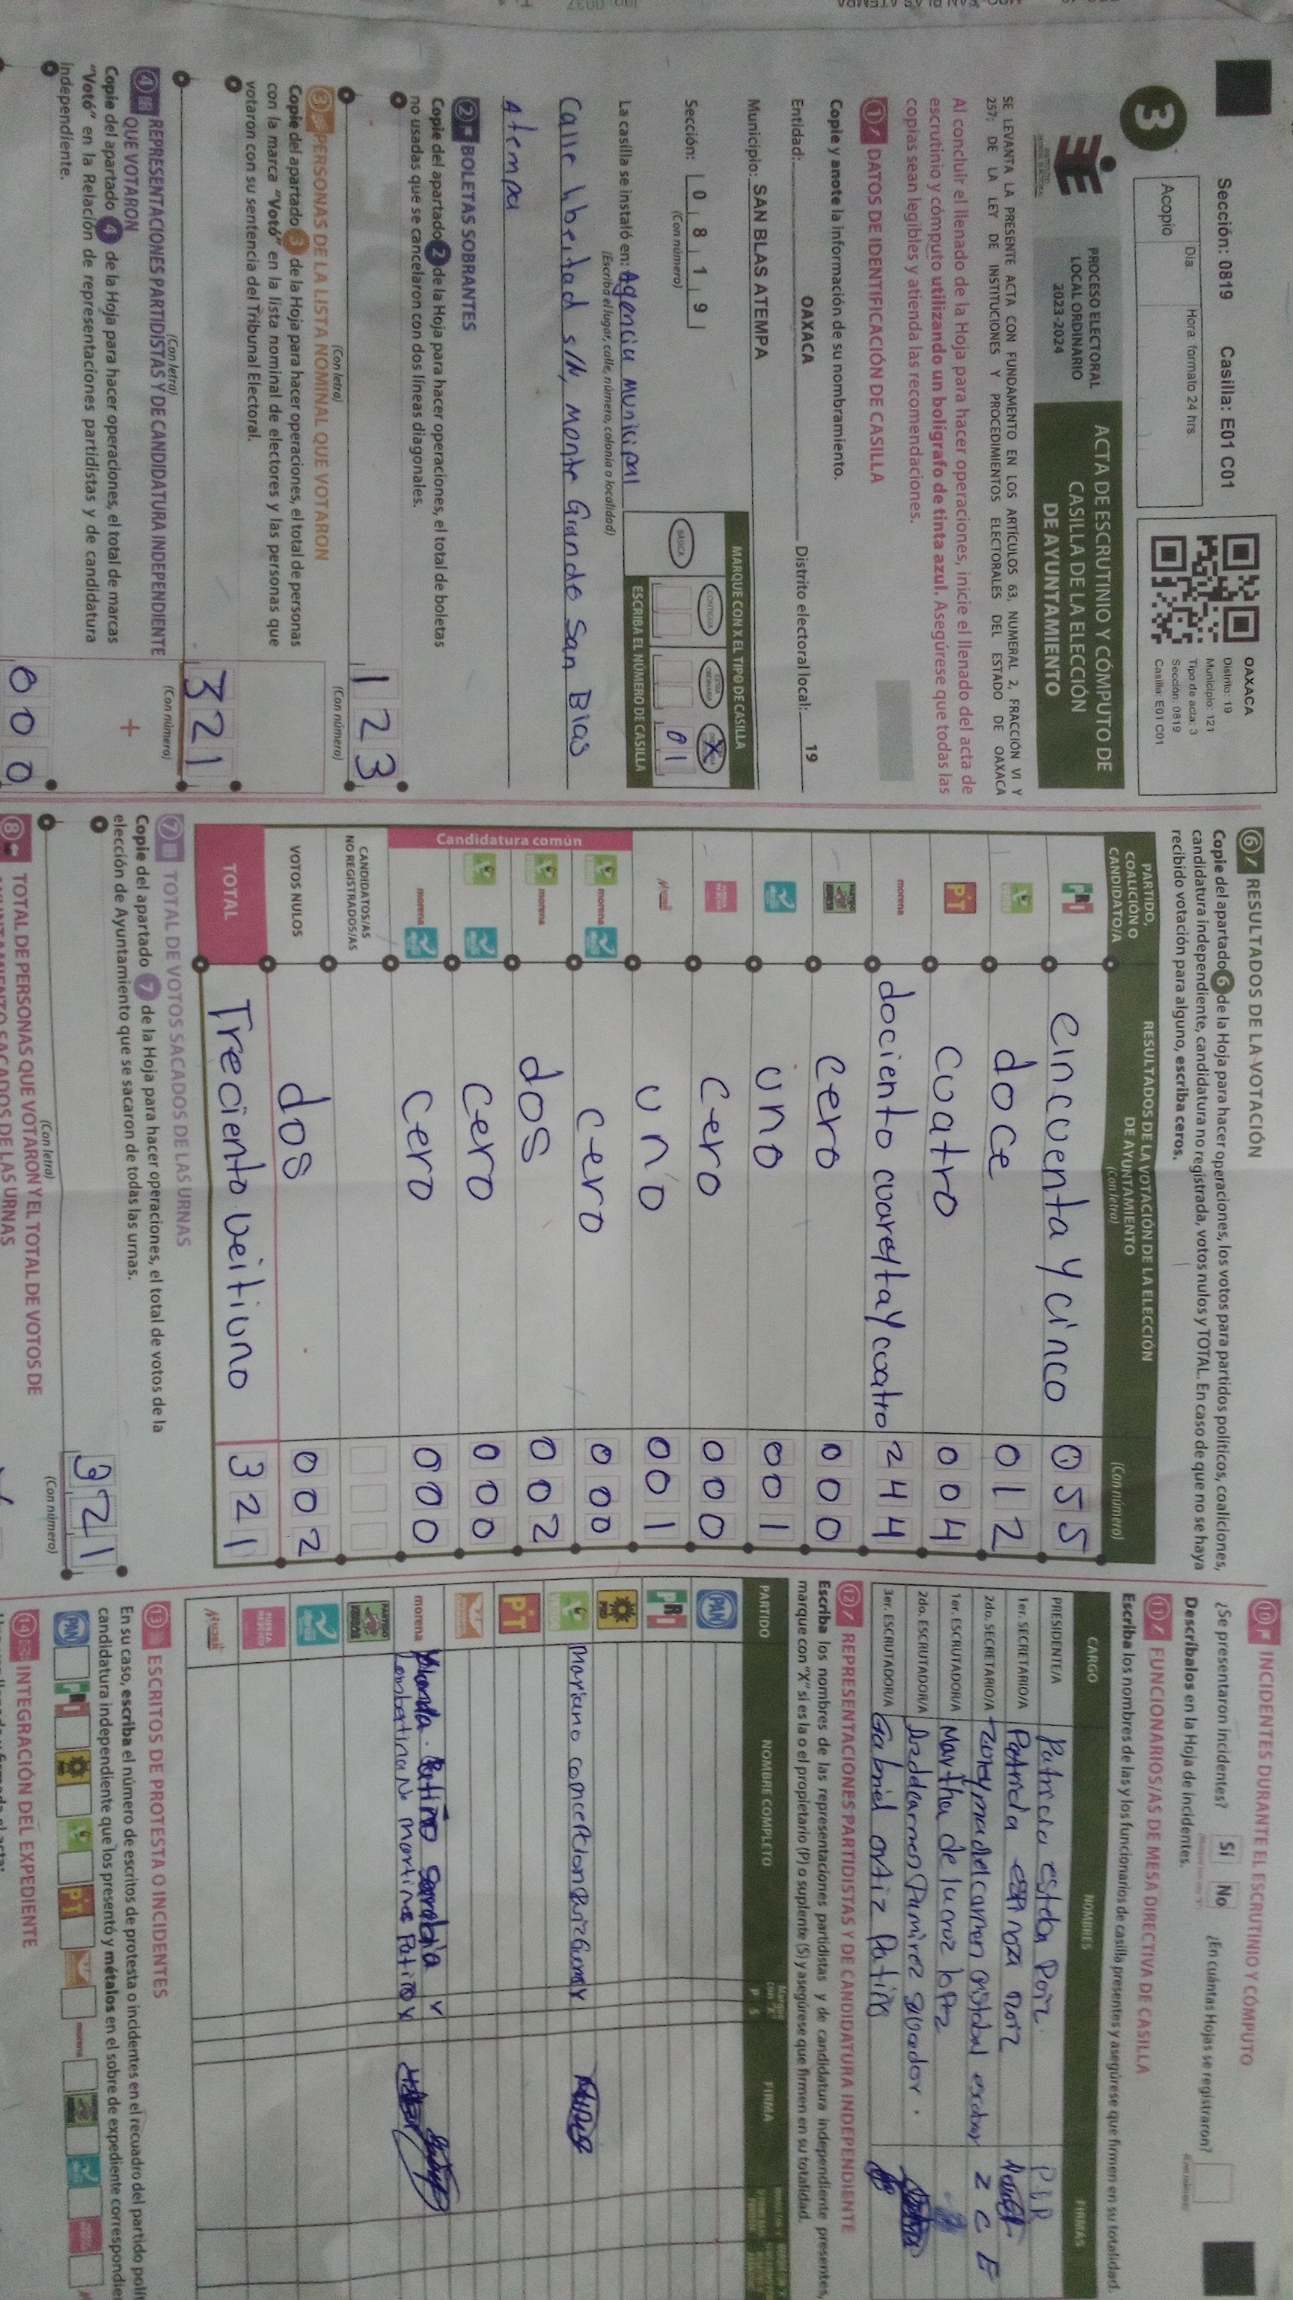 Sección: 0819 Casilla: E01 C01
Día Hora: formato 24 hrs.
Acopio
3
OAXACA
Distrito: 19
Municipio: 121
Tipo de acta: 3
Sección: 0819
Casilla: E01 C01
PROCESO ELECTORAL
LOCAL ORDINARIO
2023-2024
ACTA DE ESCRUTINIO Y CÓMPUTO DE
CASILLA DE LA ELECCIÓN
DE AYUNTAMIENTO
SE LEVANTA LA PRESENTE ACTA CON FUNDAMENTO EN LOS ARTÍCULOS 63, NUMERAL 2, FRACCIÓN VI Y
257; DE LA LEY DE INSTITUCIONES Y PROCEDIMIENTOS ELECTORALES DEL ESTADO DE OAXACA
Al concluir el llenado de la Hoja para hacer operaciones, inicie el llenado del acta de
escrutinio y cómputo utilizando un bolígrafo de tinta azul. Asegúrese que todas las
copias sean legibles y atienda las recomendaciones.
1 DATOS DE IDENTIFICACIÓN DE CASILLA
Copie y anote la información de su nombramiento.
Entidad: OAXACA Distrito electoral local: 19
Municipio: SAN BLAS ATEMPA
Sección: 0 8 1 9
(Con número)
MARQUE CON X EL TIPO DE CASILLA
BÁSICA CONTIGUA X
0 1
ESCRIBA EL NÚMERO DE CASILLA
La casilla se instaló en: Agencia Municipal
(Escriba el lugar, calle, número, colonia o localidad)
Calle libertad s/n, Monte Grande San Blas
Atempa
2 BOLETAS SOBRANTES
Copie del apartado 2 de la Hoja para hacer operaciones, el total de boletas
no usadas que se cancelaron con dos líneas diagonales.
1 2 3
(Con letra) (Con número)
3 PERSONAS DE LA LISTA NOMINAL QUE VOTARON
Copie del apartado 3 de la Hoja para hacer operaciones, el total de personas
con la marca "Votó" en la lista nominal de electores y las personas que
votaron con su sentencia del Tribunal Electoral.
3 2 1
(Con letra) (Con número)
4 REPRESENTACIONES PARTIDISTAS Y DE CANDIDATURA INDEPENDIENTE
QUE VOTARON +
Copie del apartado 4 de la Hoja para hacer operaciones, el total de marcas
"Votó" en la Relación de representaciones partidistas y de candidatura
independiente.
0 0 0
6 RESULTADOS DE LA VOTACIÓN
Copie del apartado 6 de la Hoja para hacer operaciones, los votos para partidos políticos, coaliciones,
candidatura independiente, candidatura no registrada, votos nulos y TOTAL. En caso de que no se haya
recibido votación para alguno, escriba ceros.
PARTIDO,
COALICIÓN O
CANDIDATO/A
RESULTADOS DE LA VOTACIÓN DE LA ELECCIÓN
DE AYUNTAMIENTO
(Con letra) (Con número)
PRI cincuenta y cinco 055
doce 012
PT cuatro 004
morena dociento coarenta y coatro 244
cero 000
uno 001
cero 000
uno 001
Candidatura común
morena cero 000
morena dos 002
cero 000
morena cero 000
CANDIDATOS/AS
NO REGISTRADOS/AS
VOTOS NULOS dos 002
TOTAL Treciento veitiuno 321
7 TOTAL DE VOTOS SACADOS DE LAS URNAS
Copie del apartado 7 de la Hoja para hacer operaciones, el total de votos de la
elección de Ayuntamiento que se sacaron de todas las urnas.
3 2 1
(Con letra) (Con número)
8 TOTAL DE PERSONAS QUE VOTARON Y EL TOTAL DE VOTOS DE
10 INCIDENTES DURANTE EL ESCRUTINIO Y CÓMPUTO
¿Se presentaron incidentes? Sí No ¿En cuántas Hojas se registraron?
Descríbalos en la Hoja de incidentes.
11 FUNCIONARIOS/AS DE MESA DIRECTIVA DE CASILLA
Escriba los nombres de las y los funcionarios de casilla presentes y asegúrese que firmen en su totalidad.
CARGO NOMBRES FIRMAS
PRESIDENTE/A Patricia esteba P.E.R
1er. SECRETARIO/A
2do. SECRETARIO/A Z C E
1er. ESCRUTADOR/A Martha de la cruz lopez
2do. ESCRUTADOR/A
3er. ESCRUTADOR/A Gabriel ortiz Patiño
12 REPRESENTACIONES PARTIDISTAS Y DE CANDIDATURA INDEPENDIENTE
Escriba los nombres de las representaciones partidistas y de candidatura independiente presentes,
marque con "X" si es la o el propietario (P) o suplente (S) y asegúrese que firmen en su totalidad.
PARTIDO NOMBRE COMPLETO P S FIRMA
PAN
PRI
PRD
mariano concepcion
PT
morena
13 ESCRITOS DE PROTESTA O INCIDENTES
En su caso, escriba el número de escritos de protesta o incidentes en el recuadro del partido polít
candidatura independiente que los presentó y métalos en el sobre de expediente correspondie
PAN PRI PRD PT morena
14 INTEGRACIÓN DEL EXPEDIENTE